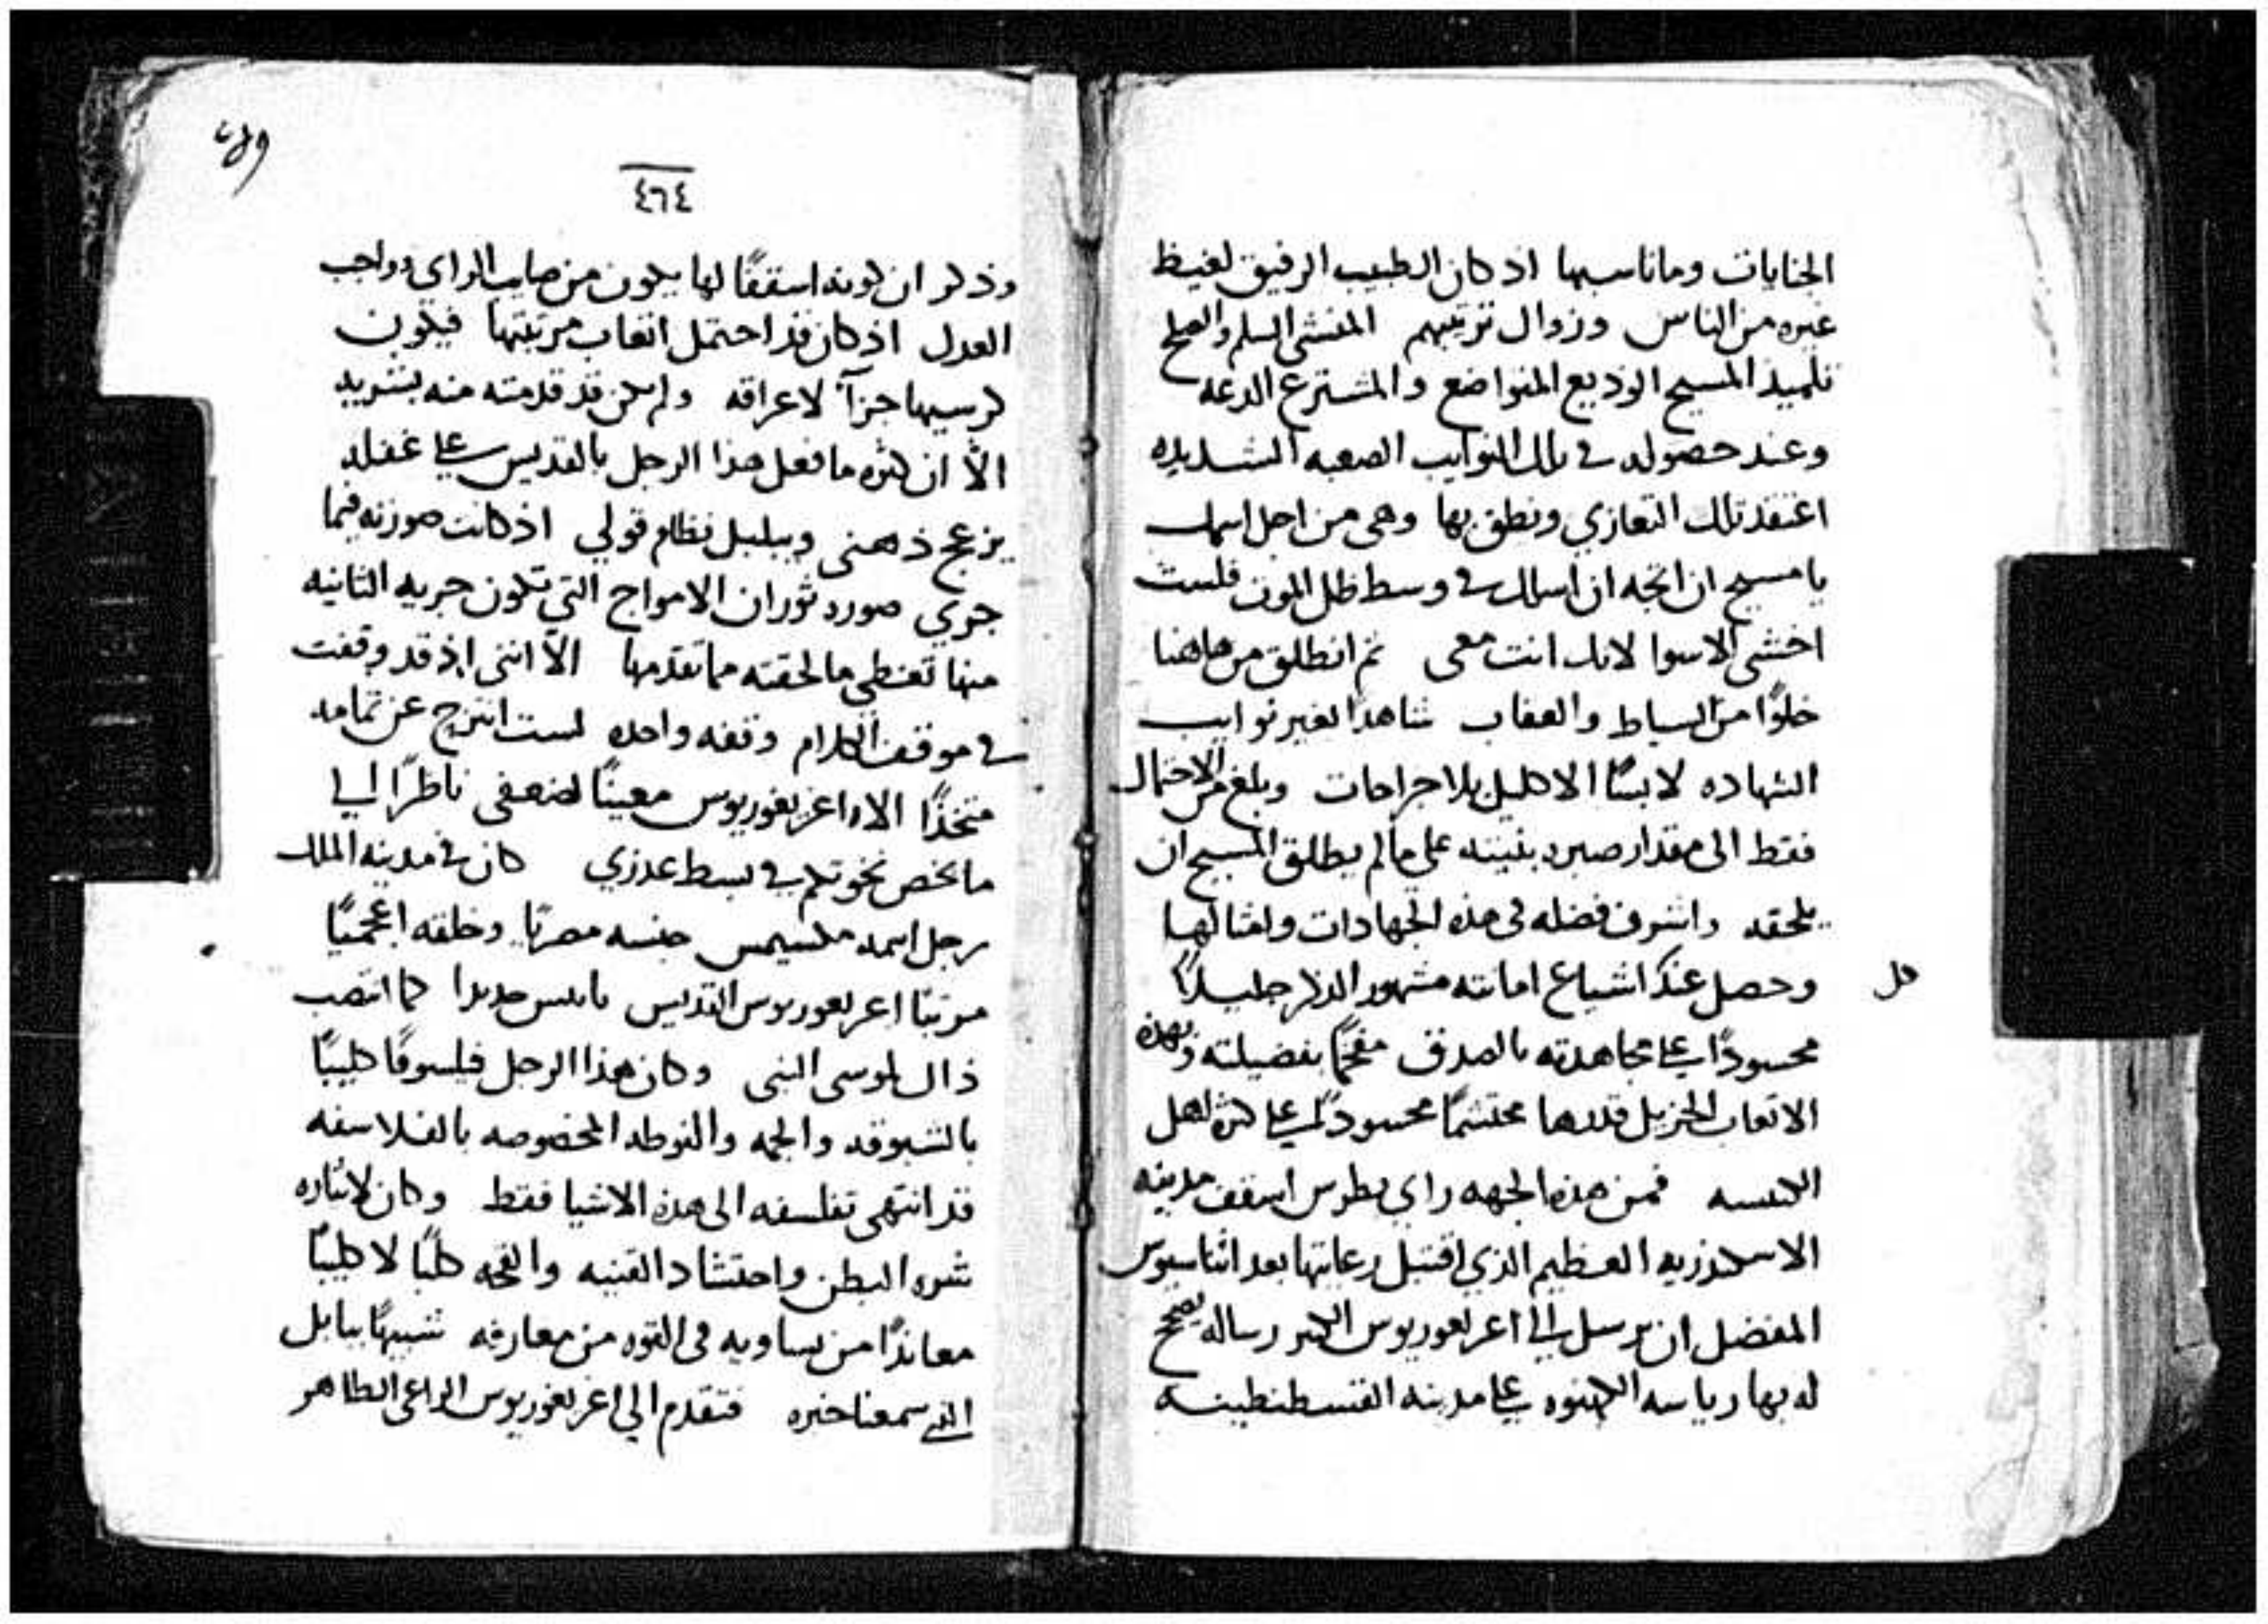 الجنايات وما ناسبها اذ كان الطبيب الرفيق لغيظ
غيره من الناس وزوال ترتيبهم المنشى السلم والصلح
تلميذ المسيح الوديع المتواضع والمشترع الدعه
وعند حصوله في تلك النوايب الصعبه الشديده
اعتقد تلك التعازي ونطق بها وهى من اجل اسمك
يا مسيح ان اتجه ان اسلك في وسط ظل الموت فلست
اخشى الاسوا لانك انت معى ثم انطلق من هاهنا
خلوًا من السياط والعقاب شاهدًا لغير نوايب
الشهاده لابسًا الاكليل بلا جراحات وبلغ من الاحتمال
فقط الى مقدار صبره بنيته على ما لم يطلق المسيح ان
يلحقه واشرف فضله فى هذه الجهادات وامثالها
وحصل عند اشياع امانته مشهور الذكر جليلاً
كل
محسودًا على مجاهدته بالصدق مفخمًا بفضيلته وبهذه
الاتعاب الجزيل قدرها محتشمًا محسودًا على كثره اهل
الكنيسه فمن هذه الجهه راي بطرس اسقف مدينه
الاسكندريه العظيم الذي اقتبل رعايتها بعد اثناسيوس
المفضل ان يرسل الى اغريغوريوس الكبير رساله يصحح
له بها رياسه الكهنوه على مدينه القسطنطينيه
٤٦٤
وذكر ان كونه اسقفًا لها يكون من صايب الراي وواجب
العدل اذ كان قد احتمل اتعاب مرتبتها فيكون
كرسيها جزآ لاعراقه ولم يكن قد قدمته منه بتشريد
الاّ ان كثره ما فعل هذا الرجل بالقديس على غفله
يزعج ذهنى ويبلبل نظام قولي اذ كانت صورته فيما
جري صوره ثوران الامواج التي تكون جريه الثانيه
منها تغطى ما لحقته مما تقدمها الاّ اننى اذ قد وقفت
في موقف الكلام وقفه واحده لست انتزح عن تمامه
متخذًا الاه اغريغوريوس معينًا لضعفى ناظرًا الى
ما يخص نحوتكم في بسط عذري كان في مدينه الملك
رجل اسمه مكسيمس جنسه مصريًا وخلقه اعجميًا
مرتبًا اغريغوريوس القديس كما انتصب
ذاك لموسى النبى وكان هذا الرجل فيلسوفًا كلبيًا
بالشبوقه والجمه والفوطه المخصوصه بالفلاسفه
قد انتهى تفلسفه الى هذه الاشيا فقط وكان لايثاره
شره البطن واحتشاد القنيه والقحه كلبًا لا كلبيًا
معاندًا من يساويه فى القوه من معارفه شبيهًا ببابل
التى سمعنا خبره فتقدم الي اغريغوريوس الراعى الطاهر